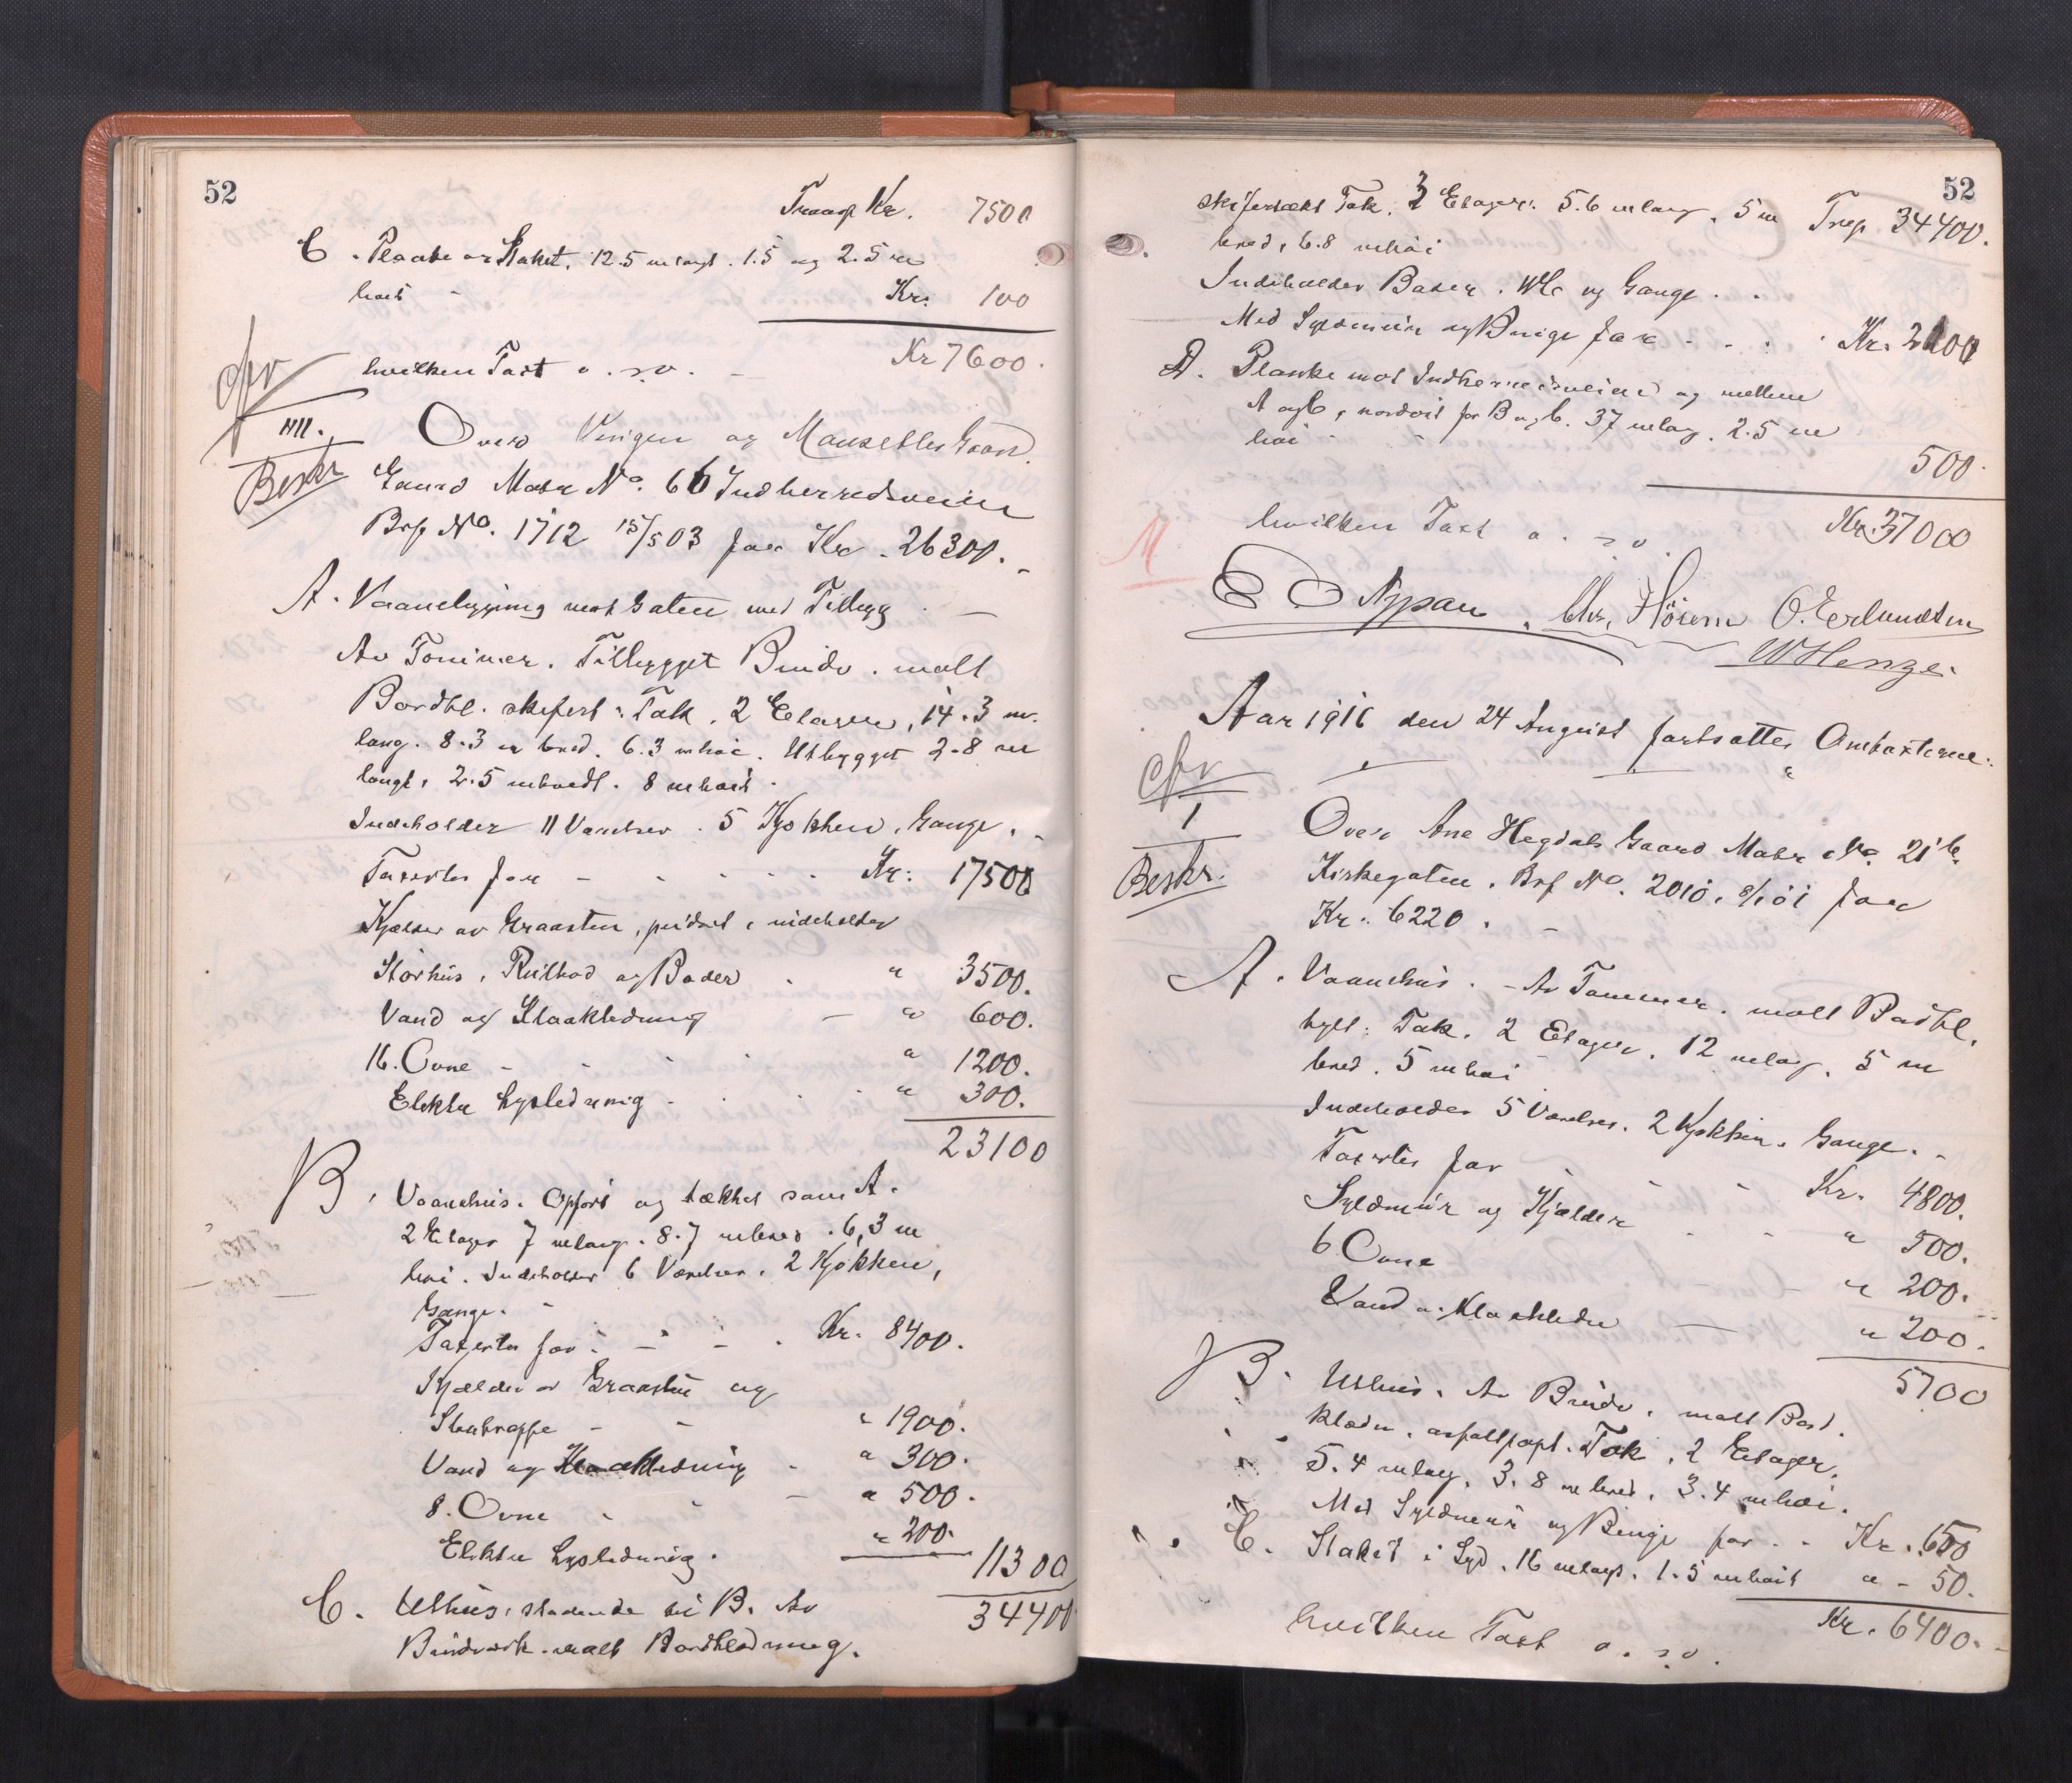 52
Transp Kr. 7500
C. Planke og Staket. 12.5 m langt. 1.5 og 2.5 m
høit - Kr. 100
hvilken Taxt o. s. v. - Kr 7600.
VII.
Over Vinigen og Gaard
Beskr
Gaard Matr No. 66 Indherredsveien
Brf No. 1712 15/5 03 for Kr. 26300.-
A. Vaaningsbygning mot Gaten med Tilbygg -
Av Tømmer. Tilbygget Bindv. malt
Bordkl. skifert: Tak. 2 Etager, 14.3 m.
lang. 8.3 m bred. 6.3 m høi. Utbygget 2.8 m
langt, 2.5 m bredt. 8 m høit.
Indeholder 11 Værelser. 5 Kjøkken, Gange. -
Taxertes for - Kr. 17500
Kjælder av Graasten, pudset, indeholder
Størhus, Rulbod og Boder. " 3500.
Vand og Kloakledning - " 600.
16. Ovne - " 1200.
Elektr Lysledning. " 300.
23100
B. Vaanehus. Opført og tækket som A.
2 Etager 7 m lang. 8.7 m bred. 6,3 m
høi. Indeholder 6 Værelser. 2 Kjøkken,
Gange. -
Taxertes for: - Kr. 8400.
Kjælder av Graasten og
- " 1900.
Vand og Kloakledning - " 300.
8. Ovne - " 500.
Elektr Lysledning. " 200.
11300
C. Uthus, stødende til B. Av 34400
Bindverk. malt Bordklædning.
52
skifertækt Tak. 3 Etager. 5.6 m lang, 5 m Trsp. 34400.
bred, 6.8 m høi
Indeholder Boder. WC og Gange. .
Med Syldmur og Binge for - . Kr. 2100
D. Planke mot Indherredsveien og mellem
A og C, nordvest for B og C. 37 m lang. 2.5 m
høi 500.
hvilken Taxt o. s. v. Kr. 37000
M
E D Nypan. Chr. Hørem O. Erlandsen
W Henze.
Aar 1916 den 24 August fortsattes Omtaxterne.
I
Over Ane Hegdals Gaard Matr No. 21 b.
Beskr.
Kirkegaten. Brf No. 2010. 8/1 01 for
Kr. 6220. -
A. Vaanehus. - Av Tømmer. malt Bordkl.
Tak. 2 Etager. 12 m lang. 5 m
bred. 5 m høi
Indeholder 5 Værelser. 2 Kjøkken. Gange. -
Taxertes for - Kr. 4800.
Syldmur og Kjælder " 500.
6 Ovne - " 200.
Vand og Kloakledn - " 200.
5700
B. Uthus. Av Bindv. malt Bord.
klædn. asfaltpapt. Tak. 2 Etager.
5.4 m lang. 3.8 m bred. 3.4 m høi.
Med Syldmur og Binge for. - Kr. 650
C. Staket i Syd. 16 m langt. 1.5 m høit " - 50.
hvilken Taxt o. s. v. Kr. 6400.-